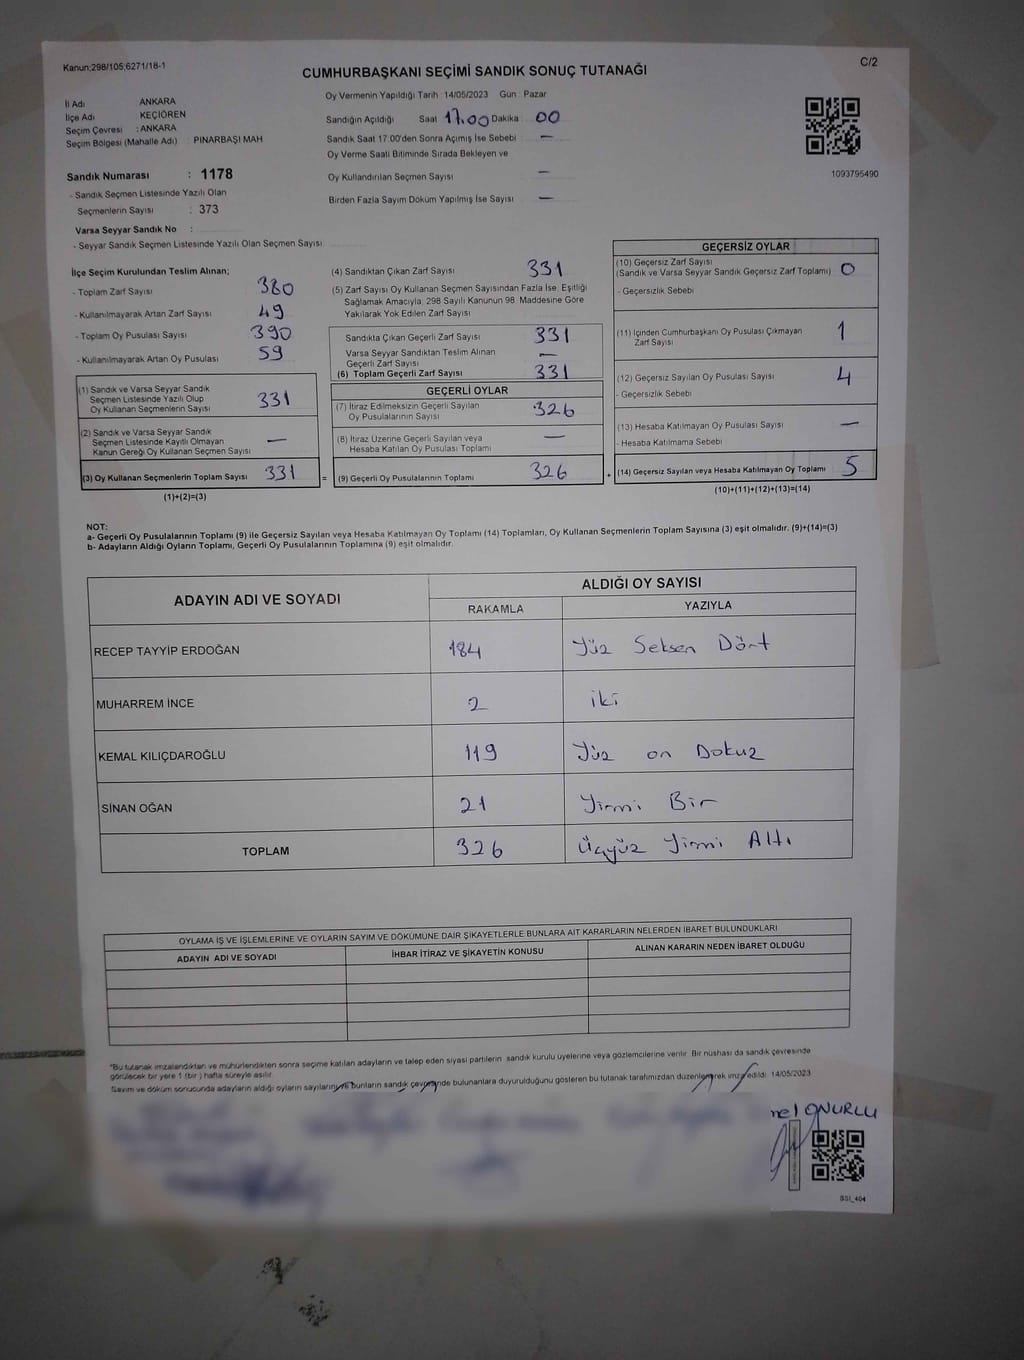 Kanun;298/105;6271/18-1
C/2
CUMHURBAŞKANI SEÇİMİ SANDIK SONUÇ TUTANAĞI
İl Adı ANKARA
İlçe Adı KEÇİÖREN
Seçim Çevresi : ANKARA
Seçim Bölgesi (Mahalle Adı) : PINARBAŞI MAH
Sandık Numarası : 1178
- Sandık Seçmen Listesinde Yazılı Olan
Seçmenlerin Sayısı : 373
Varsa Seyyar Sandık No :
- Seyyar Sandık Seçmen Listesinde Yazılı Olan Seçmen Sayısı
Oy Vermenin Yapıldığı Tarih : 14/05/2023 Gün : Pazar
Sandığın Açıldığı Saat 17.00 Dakika : 00
Sandık Saat 17:00'den Sonra Açımış İse Sebebi : —
Oy Verme Saati Bitiminde Sırada Bekleyen ve
Oy Kullandırılan Seçmen Sayısı —
Birden Fazla Sayım Döküm Yapılmış İse Sayısı —
1093795490
İlçe Seçim Kurulundan Teslim Alınan;
- Toplam Zarf Sayısı 380
- Kullanılmayarak Artan Zarf Sayısı 49
- Toplam Oy Pusulası Sayısı 390
- Kullanılmayarak Artan Oy Pusulası 59
(1) Sandık ve Varsa Seyyar Sandık
Seçmen Listesinde Yazılı Olup
Oy Kullanan Seçmenlerin Sayısı 331
(2) Sandık ve Varsa Seyyar Sandık
Seçmen Listesinde Kayıtlı Olmayan
Kanun Gereği Oy Kullanan Seçmen Sayısı —
(3) Oy Kullanan Seçmenlerin Toplam Sayısı 331
(1)+(2)=(3)
=
(4) Sandıktan Çıkan Zarf Sayısı 331
(5) Zarf Sayısı Oy Kullanan Seçmen Sayısından Fazla İse, Eşitliği
Sağlamak Amacıyla, 298 Sayılı Kanunun 98. Maddesine Göre
Yakılarak Yok Edilen Zarf Sayısı
Sandıkta Çıkan Geçerli Zarf Sayısı 331
Varsa Seyyar Sandıktan Teslim Alınan
Geçerli Zarf Sayısı —
(6) Toplam Geçerli Zarf Sayısı 331
GEÇERLİ OYLAR
(7) İtiraz Edilmeksizin Geçerli Sayılan
Oy Pusulalarının Sayısı 326
(8) İtiraz Üzerine Geçerli Sayılan veya
Hesaba Katılan Oy Pusulası Toplamı —
(9) Geçerli Oy Pusulalarının Toplamı 326
+
GEÇERSİZ OYLAR
(10) Geçersiz Zarf Sayısı
(Sandık ve Varsa Seyyar Sandık Geçersiz Zarf Toplamı) 0
- Geçersizlik Sebebi
(11) İçinden Cumhurbaşkanı Oy Pusulası Çıkmayan
Zarf Sayısı 1
(12) Geçersiz Sayılan Oy Pusulası Sayısı 4
- Geçersizlik Sebebi
(13) Hesaba Katılmayan Oy Pusulası Sayısı —
- Hesaba Katılmama Sebebi
(14) Geçersiz Sayılan veya Hesaba Katılmayan Oy Toplamı 5
(10)+(11)+(12)+(13)=(14)
NOT:
a- Geçerli Oy Pusulalarının Toplamı (9) ile Geçersiz Sayılan veya Hesaba Katılmayan Oy Toplamı (14) Toplamları, Oy Kullanan Seçmenlerin Toplam Sayısına (3) eşit olmalıdır. (9)+(14)=(3)
b- Adayların Aldığı Oyların Toplamı, Geçerli Oy Pusulalarının Toplamına (9) eşit olmalıdır.
ADAYIN ADI VE SOYADI ALDIĞI OY SAYISI
RAKAMLA YAZIYLA
RECEP TAYYİP ERDOĞAN 184 Yüz Seksen Dört
MUHARREM İNCE 2 iki
KEMAL KILIÇDAROĞLU 119 Yüz on Dokuz
SİNAN OĞAN 21 Yirmi Bir
TOPLAM 326 Üçyüz Yirmi Altı
OYLAMA İŞ VE İŞLEMLERİNE VE OYLARIN SAYIM VE DÖKÜMÜNE DAİR ŞİKAYETLERLE BUNLARA AİT KARARLARIN NELERDEN İBARET BULUNDUKLARI
ADAYIN ADI VE SOYADI İHBAR İTİRAZ VE ŞİKAYETİN KONUSU ALINAN KARARIN NEDEN İBARET OLDUĞU
*Bu tutanak imzalandıktan ve mühürlendikten sonra seçime katılan adayların ve talep eden siyasi partilerin sandık kurulu üyelerine veya gözlemcilerine verilir. Bir nüshası da sandık çevresinde
görülecek bir yere 1 (bir) hafta süreyle asılır.
Sayım ve döküm sonucunda adayların aldığı oyların sayılarını ve bunların sandık çevresinde bulunanlara duyurulduğunu gösteren bu tutanak tarafımızdan düzenlenerek imza edildi. 14/05/2023
nel ONURLU
SSI_404